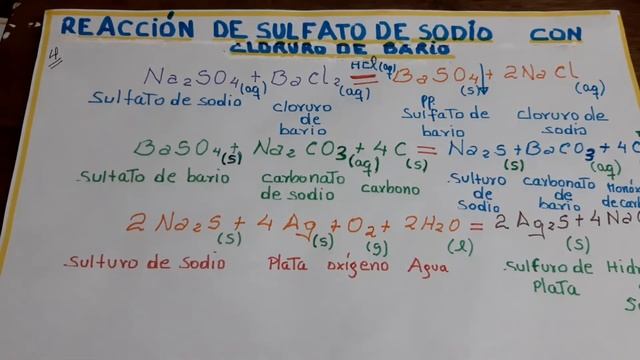 REACCIÓN DE SULFATO DE SODIO CON
CLORURO DE BARIO
4
HCl(aq)
Na₂SO₄(aq) + BaCl₂(aq) = BaSO₄(s)↓ + 2NaCl(aq)
Sulfato de sodio cloruro de bario PP Sulfato de bario cloruro de sodio
BaSO₄(s) + Na₂CO₃(aq) + 4C(s) = Na₂S(s) + BaCO₃(aq) + 4C
sulfato de bario carbonato de sodio carbono Sulfuro de Sodio carbonato de bario
2Na₂S(s) + 4Ag(s) + O₂(g) + 2H₂O(l) = 2Ag₂S(s) + 4Na
sulfuro de Sodio Plata oxígeno Agua sulfuro de Plata